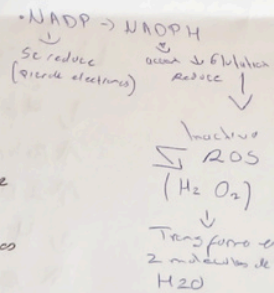 ·NADP → NADPH
Se reduce
(pierde electrones)
Glutation
Reduce
Inactiva
ROS
(H2 O2)
Transforma en
2 moléculas de
H2O